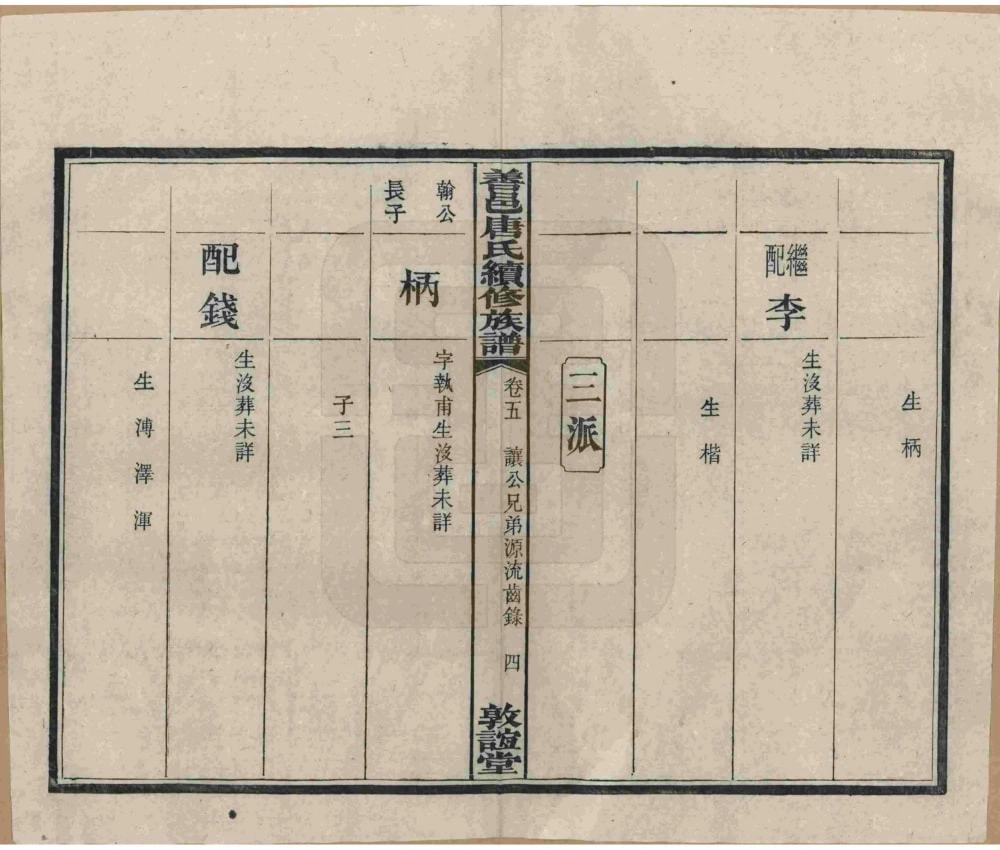 生柄
繼配
李
生沒葬未詳
生楷
三派
善邑唐氏續修族譜
卷五
讓公兄弟源流齒錄
四
敦誼堂
翰公
長子
柄
字執甫生沒葬未詳
子三
配錢
生沒葬未詳
生溥澤渾